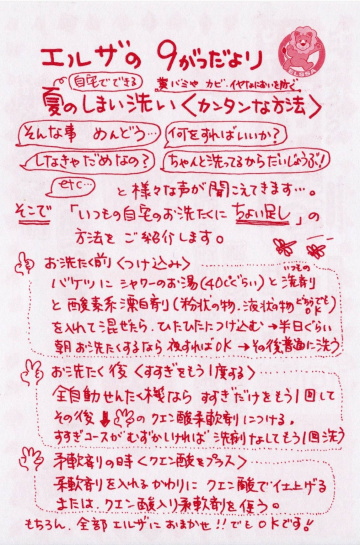 エルザの 9がつだより
自宅でできる
黄バミや カビ、イヤなにおいを防ぐ
夏のしまい洗い〈カンタンな方法〉
そんな事 めんどう…
何をすればいいか?
しなきゃだめなの?
ちゃんと洗ってるからだいじょうぶ!
etc…
と様々な声が聞こえてきます…。
そこで 「いつもの自宅のお洗たくにちょい足し」の
方法を ご紹介します。
お洗たく前〈つけ込み〉
バケツに シャワーのお湯(40℃ぐらい)と いつもの洗剤
と酸素系漂白剤(粉状の物、液状の物 どちらでもOK)
を入れて混ぜたら、ひたひたにつけ込む→半日ぐらい
朝お洗たくするなら 夜すればOK →その後普通に洗う
お洗たく後〈すすぎをもう1度する〉
全自動せんたく機なら すすぎだけをもう1回して
その後↓の クエン酸柔軟剤につける。
すすぎコースがむずかしければ 洗剤なしでもう1回洗う
柔軟剤の時〈クエン酸をプラス〉
柔軟剤を入れるかわりに クエン酸で仕上げる
または、クエン酸入り柔軟剤を使う。
もちろん、全部エルザにおまかせ!!でもOKです!!